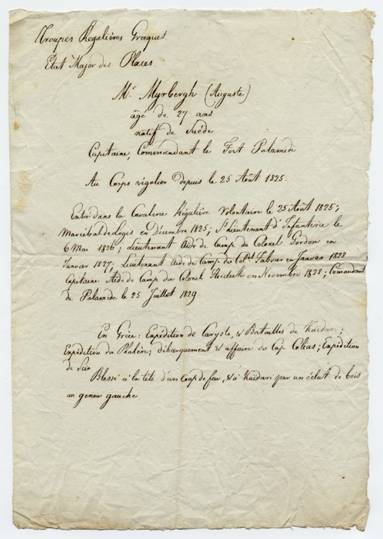 Troupes Régulières Grecques
Etat Major des Places
Mr Myrbergh (Auguste)
âgé de 27 ans
natif de Suède
Capitaine, Commandant le Fort Palamide
Au Corps régulier depuis le 25 Août 1825.
Entré dans la Cavalerie Régulière Volontaire le 25 Août 1825;
Maréchal de Logis en Décembre 1825, S. Lieutenant d'Infanterie le
6 Mai 1826; Lieutenant Aide de Camp du Colonel Gordon en
Janvier 1827, Lieutenant Aide de Camp du Fabvier en Janvier 1828
Capitaine Aide de Camp du Colonel Heideck en Novembre 1828; Commandant
de Palamide le 25 Juillet 1829.
En Grèce: Expédition de Caryste, & Batailles de Kaidari;
Expédition du Phalère; débarquement & affaire du Cap Colias; Expédition
de Scio
Blessé à la tête d'un Coup de feu, & à Kaidari par un éclat de bois
au genou gauche